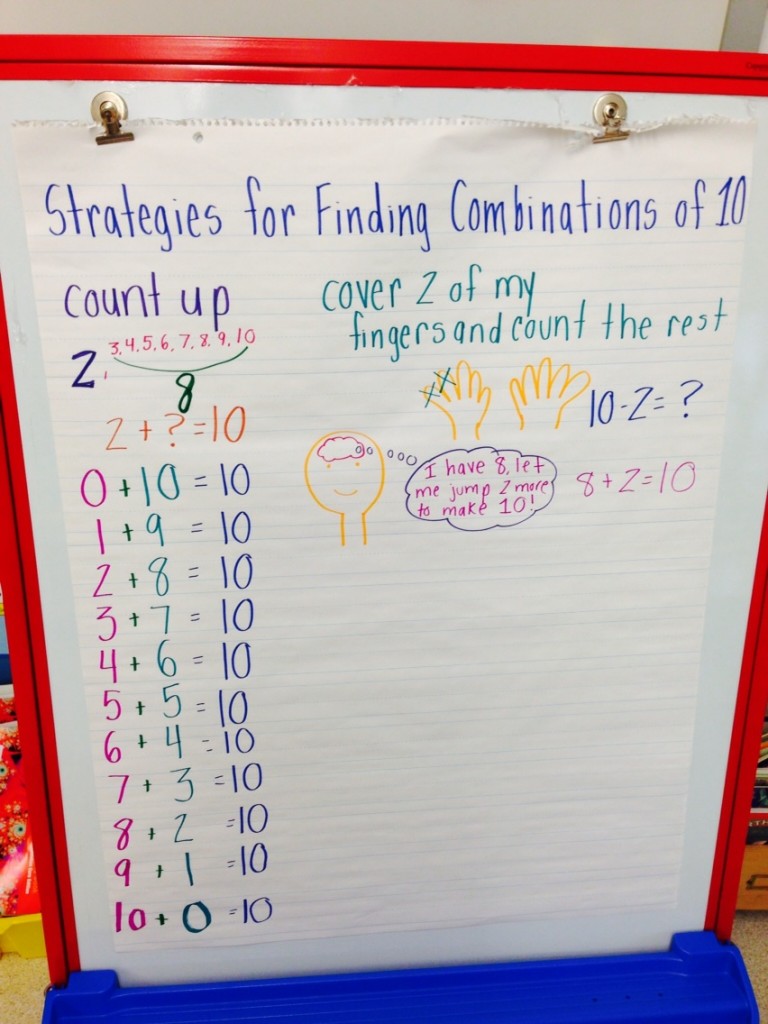 Strategies for Finding Combinations of 10
count up
2, 3,4,5,6,7,8,9,10
8
2+?=10
0+10=10
1+9=10
2+8=10
3+7=10
4+6=10
5+5=10
6+4=10
7+3=10
8+2=10
9+1=10
10+0=10
cover 2 of my
fingers and count the rest
10-2=?
I have 8, let
me jump 2 more
to make 10!
8+2=10